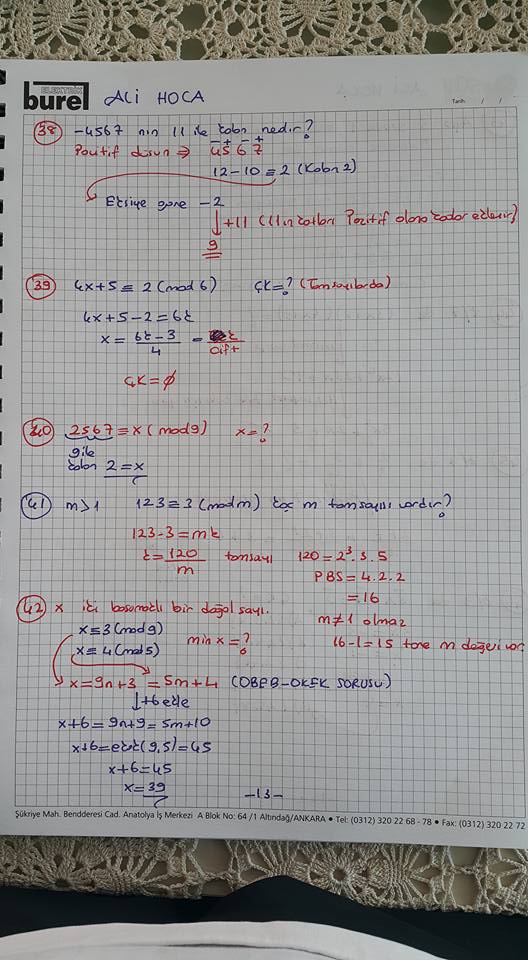 ELEKTRİK
burel
ALİ HOCA
Tarih: / /
38 -4567 nin 11 ile kalanı nedir?
Pozitif düşün ⇒ 4567
- + - +
12-10=2 (Kalan 2)
Eksiye göre -2
↓+11 (11'in katları pozitif olana kadar eklenir)
9
39 4x+5≡2(mod6) ÇK=? (Tamsayılarda)
4x+5-2=6k
x=6k-3/4 = Tek/Çift
ÇK=∅
40 2567≡x(mod9) x=?
9 ile
kalan 2=x
41 m>1 123≡3(modm) kaç m tamsayısı vardır?
123-3=mk
k=120/m tamsayı 120=2³.3.5
PBS=4.2.2
=16
m≠1 olmaz
16-1=15 tane m değeri var
42 x iki basamaklı bir doğal sayı.
x≡3(mod9)
x≡4(mod5) min x=?
x=9n+3=5m+4 (OBEB-OKEK SORUSU)
↓+6 ekle
x+6=9n+9=5m+10
x+6=ekok(9,5)=45
x+6=45
x=39
-13-
Şükriye Mah. Bendderesi Cad. Anatolya İş Merkezi A Blok No: 64 /1 Altındağ/ANKARA • Tel: (0312) 320 22 68 - 78 • Fax: (0312) 320 22 72